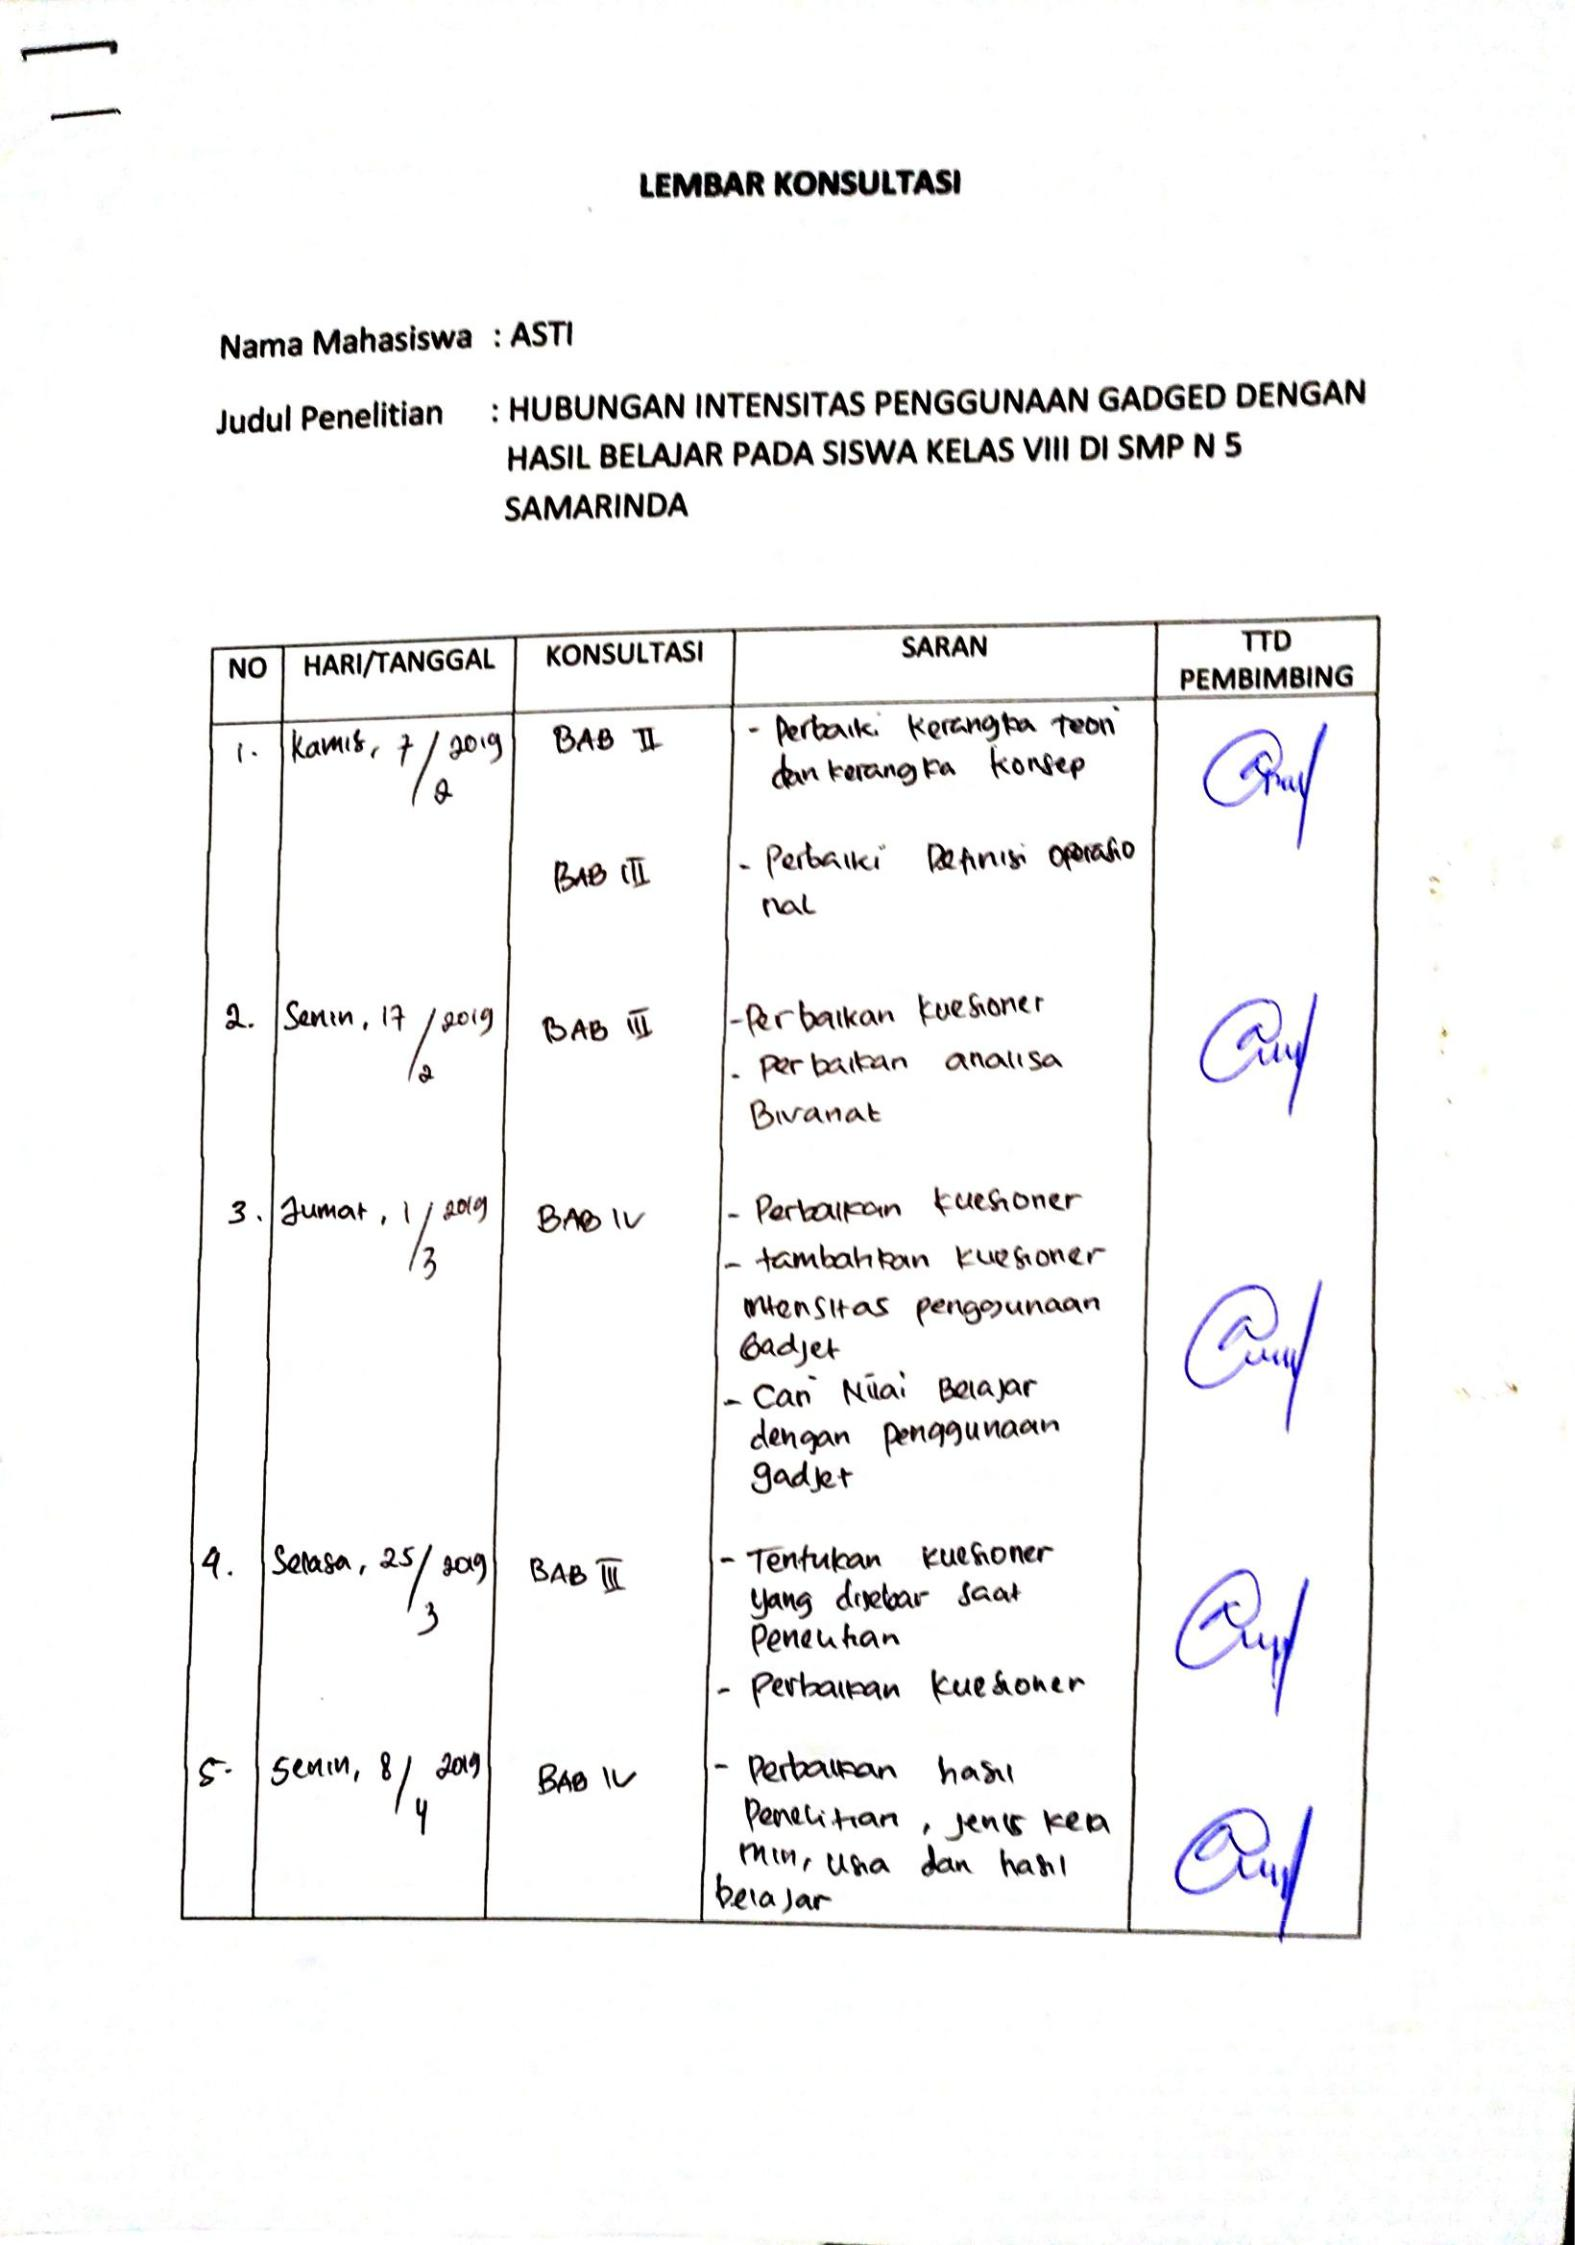 LEMBAR KONSULTASI
Nama Mahasiswa : ASTI
Judul Penelitian : HUBUNGAN INTENSITAS PENGGUNAAN GADGED DENGAN
HASIL BELAJAR PADA SISWA KELAS VIII DI SMP N 5
SAMARINDA
NO HARI/TANGGAL KONSULTASI SARAN TTD PEMBIMBING
1. Kamis, 7/2 2019 BAB II - Perbaiki Kerangka teori
dan kerangka konsep
BAB III - Perbaiki Definisi operasio
nal
2. Senin, 17/2 2019 BAB III - Perbaikan kuesioner
- perbaikan analisa
Bivariat
3. Jumat, 1/3 2019 BAB IV - Perbaikan kuesioner
- tambahkan kuesioner
intensitas penggunaan
Gadjet
- Cari Nilai Belajar
dengan penggunaan
gadjet
4. Selasa, 25/3 2019 BAB III - Tentukan kuesioner
yang disebar saat
Penelitian
- Perbaikan kuesioner
5. Senin, 8/4 2019 BAB IV - Perbaikan hasil
Penelitian, jenis kela
min, usia dan hasil
belajar